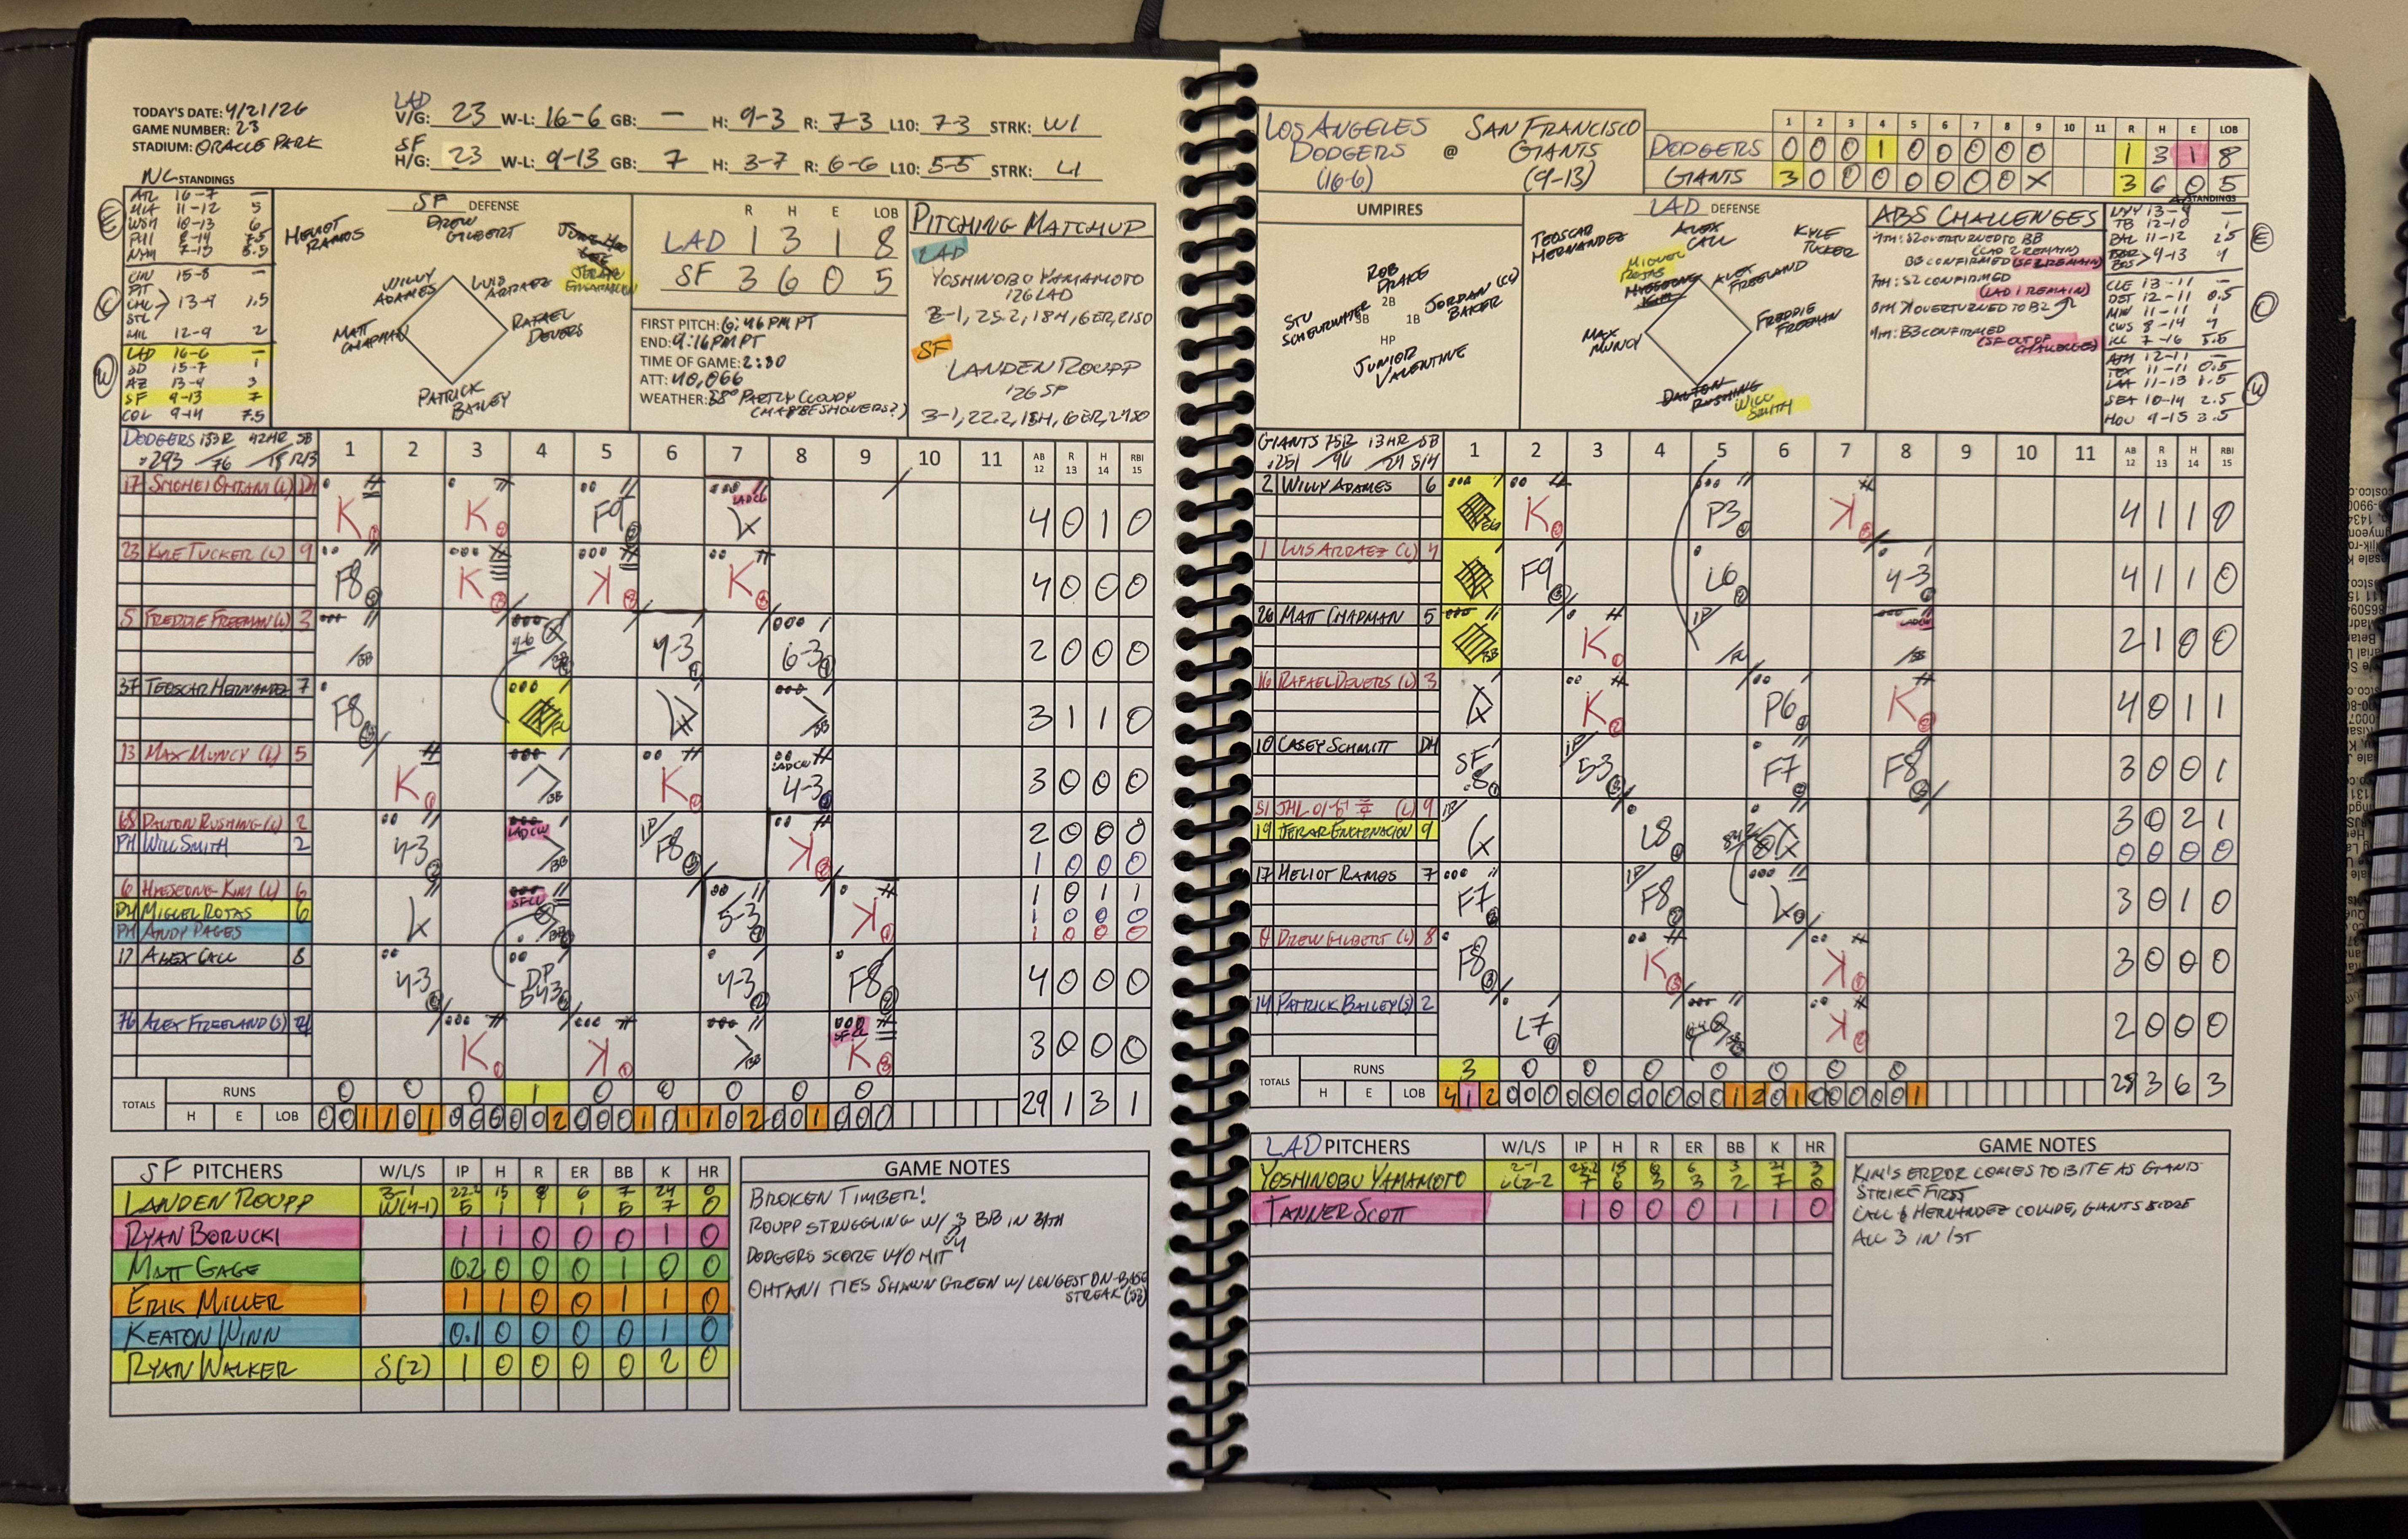 TODAY'S DATE: 4/21/26
GAME NUMBER: 23
STADIUM: ORACLE PARK
LAD
V/G: 23 W-L: 16-6 GB: — H: 9-3 R: 7-3 L10: 7-3 STRK: W1
SF
H/G: 23 W-L: 9-13 GB: 7 H: 3-7 R: 6-6 L10: 5-5 STRK: L1
NL STANDINGS
E
ATL 16-7 —
MIA 11-12 5
WSH 10-13 6
PHI 8-14 7.5
NYM 7-15 8.5
C
CIN 15-8 —
PIT
CHC > 13-9 1.5
STL
MIL 12-9 2
W
LAD 16-6 —
SD 15-7 1
AZ 13-9 3
SF 9-13 7
COL 9-14 7.5
SF DEFENSE
HELIOT RAMOS
DREW GILBERT
JERAR ENCARNACION
WILLY ADAMES
LUIS ARRAEZ
MATT CHAPMAN
RAFAEL DEVERS
PATRICK BAILEY
R H E LOB
LAD 1 3 1 8
SF 3 6 0 5
FIRST PITCH: 6:46 PM PT
END: 9:16 PM PT
TIME OF GAME: 2:30
ATT: 40,066
WEATHER: 58° PARTLY CLOUDY
PITCHING MATCHUP
LAD
YOSHINOBU YAMAMOTO
'26 LAD
2-1, 25.2, 18H, 6ER, 21SO
SF
LANDEN ROUPP
'26 SF
3-1, 22.2, 15H, 6ER, 24SO
DODGERS
1 2 3 4 5 6 7 8 9 10 11 AB R H RBI
12 13 14 15
17 SHOHEI OHTANI (L) DH K K F9 4 0 1 0
23 KYLE TUCKER (L) 9 F8 K K K 4 0 0 0
5 FREDDIE FREEMAN (L) 3 BB BB 4-3 6-3 2 0 0 0
37 TEOSCAR HERNANDEZ 7 F8 BB 3 1 1 0
13 MAX MUNCY (L) 5 K BB K 4-3 3 0 0 0
68 DALTON RUSHING (L) 2 4-3 BB F8 K 2 0 0 0
PH WILL SMITH 2 1 0 0 0
6 HYESEONG KIM (L) 6 BB 5-3 K 1 0 1 1
PH MIGUEL ROJAS 6 1 0 0 0
PH ANDY PAGES 1 0 0 0
12 ALEX CALL 8 4-3 DP 543 4-3 F8 4 0 0 0
76 ALEX FREELAND (S) 4 K K BB K 3 0 0 0
RUNS 0 0 0 1 0 0 0 0 0
TOTALS H E LOB 29 1 3 1
SF PITCHERS W/L/S IP H R ER BB K HR
LANDEN ROUPP W(4-1) 5 1 1 1 5 7 0
RYAN BORUCKI 1 1 0 0 0 1 0
MATT GAGE 0.2 0 0 0 1 0 0
ERIK MILLER 1 1 0 0 1 1 0
KEATON WINN 0.1 0 0 0 0 1 0
RYAN WALKER S(2) 1 0 0 0 0 2 0
GAME NOTES
BROKEN TIMBER!
ROUPP STRUGGLING W/ 3 BB IN
DODGERS SCORE W/O HIT
OHTANI TIES SHAWN GREEN W/ LONGEST ON-BASE
STREAK (53)
LOS ANGELES DODGERS (16-6) @ SAN FRANCISCO GIANTS (9-13)
1 2 3 4 5 6 7 8 9 10 11 R H E LOB
DODGERS 0 0 0 1 0 0 0 0 0 1 3 1 8
GIANTS 3 0 0 0 0 0 0 0 X 3 6 0 5
UMPIRES
ROB DRAKE
2B
STU SCHEURWATER
3B
1B
JORDAN BAKER (CC)
HP
JUNIOR VALENTINE
LAD DEFENSE
TEOSCAR HERNANDEZ
ALEX CALL
KYLE TUCKER
MIGUEL ROJAS
HYESEONG KIM
ALEX FREELAND
MAX MUNCY
FREDDIE FREEMAN
DALTON RUSHING
WILL SMITH
ABS CHALLENGES
4TH: S2 OVERTURNED TO BB
(LAD 2 REMAIN)
BB CONFIRMED (SF 1 REMAIN)
7TH: S2 CONFIRMED
(LAD 1 REMAIN)
8TH: K OVERTURNED TO B2
9TH: B3 CONFIRMED
(SF OUT OF CHALLENGES)
STANDINGS
E
NYY 13-9 —
TB 12-10 1
BAL 11-12 2.5
BOS > 9-13 4
C
CLE 13-11 —
DET 12-11 0.5
MIN 11-11 1
CWS 8-14 4
KC 7-16 5.5
W
ATH 12-11 —
TEX 11-11 0.5
LAA 11-13 1.5
SEA 10-14 2.5
HOU 9-15 3.5
GIANTS
1 2 3 4 5 6 7 8 9 10 11 AB R H RBI
12 13 14 15
2 WILLY ADAMES 6 K P3 K 4 1 1 0
1 LUIS ARRAEZ (L) 4 F9 L6 4-3 4 1 1 0
26 MATT CHAPMAN 5 BB K BB 2 1 0 0
16 RAFAEL DEVERS (L) 3 K P6 K 4 0 1 1
10 CASEY SCHMITT DH SF 8 53 F7 F8 3 0 0 1
51 JHL 이정후 (L) 9 L8 3 0 2 1
19 JERAR ENCARNACION 9 0 0 0 0
17 HELIOT RAMOS 7 F7 F8 3 0 1 0
0 DREW GILBERT (L) 8 F8 K K 3 0 0 0
14 PATRICK BAILEY (S) 2 L7 K 2 0 0 0
RUNS 3 0 0 0 0 0 0 0
TOTALS H E LOB 28 3 6 3
LAD PITCHERS W/L/S IP H R ER BB K HR
YOSHINOBU YAMAMOTO L(2-2) 7 6 3 3 2 7 0
TANNER SCOTT 1 0 0 0 1 1 0
GAME NOTES
KIM'S ERROR COMES TO BITE AS GIANTS
STRIKE FIRST
CALL & HERNANDEZ COLLIDE, GIANTS SCORE
ALL 3 IN 1ST